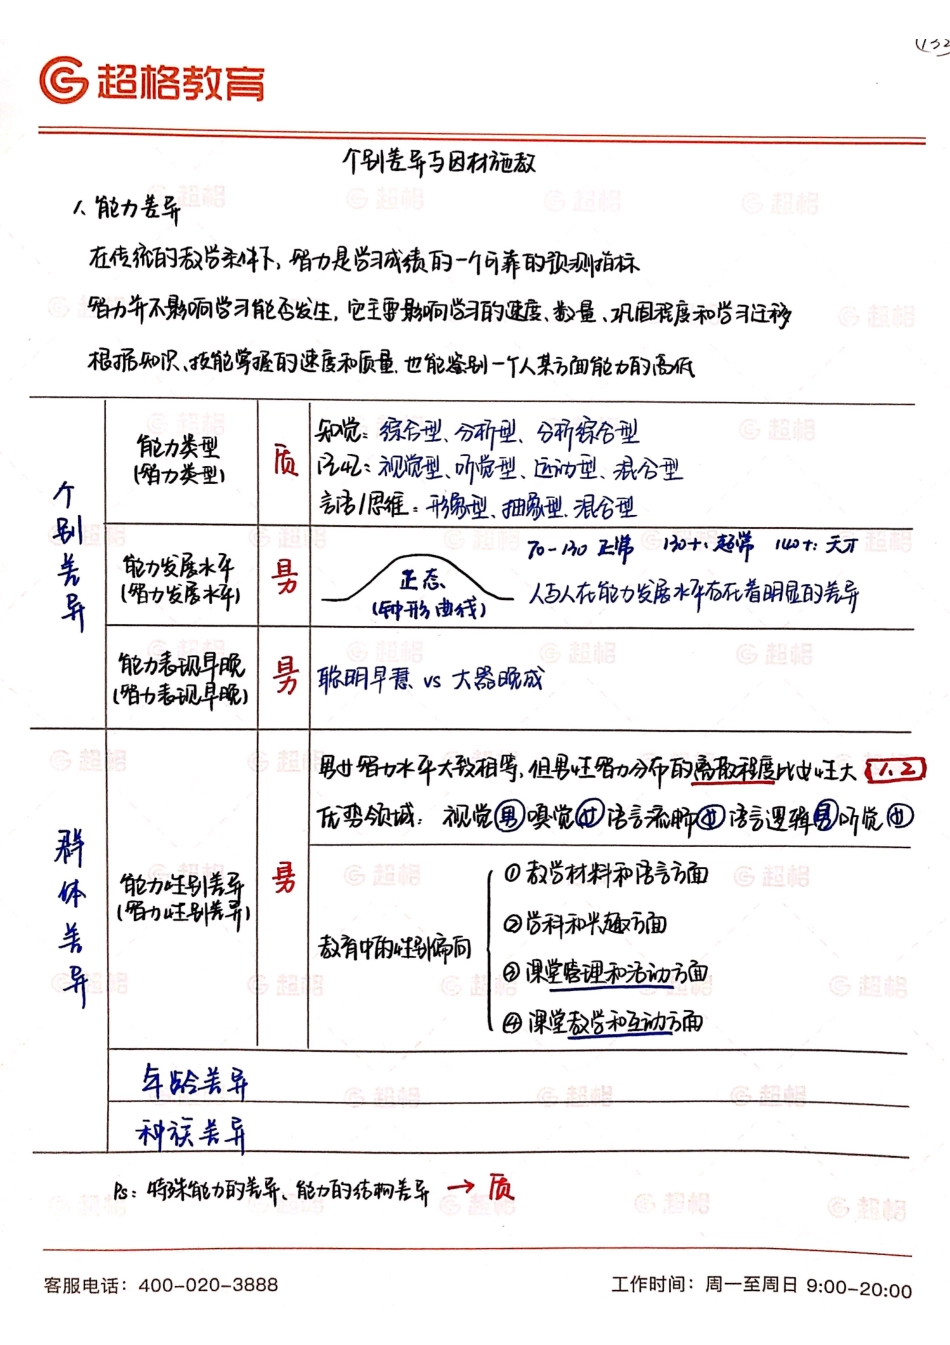 132
超格教育
个别差异与因材施教
1、能力差异
在传统的教学条件下，智力是学习成绩的一个可靠的预测指标
智力并不影响学习能否发生，它主要影响学习的速度、数量、巩固程度和学习迁移
根据知识、技能掌握的速度和质量，也能鉴别一个人某方面能力的高低
个别差异
能力类型
(智力类型)
质
知觉：综合型、分析型、分析综合型
记忆：视觉型、听觉型、运动型、混合型
言语/思维：形象型、抽象型、混合型
能力发展水平
(智力发展水平)
量
正态
(钟形曲线)
70-130 正常 130+：超常 140+：天才
人与人在能力发展水平存在着明显的差异
能力表现早晚
(智力表现早晚)
量
聪明早慧 vs 大器晚成
群体差异
能力性别差异
(智力性别差异)
量
男女智力水平大致相等，但男性智力分布的离散程度比女性大 1.2
优势领域：视觉男 嗅觉女 语言流畅女 语言逻辑男 听觉女
教育中的性别偏向
①教学材料和语言方面
②学科和兴趣方面
③课堂管理和活动方面
④课堂教学和互动方面
年龄差异
种族差异
Ps：特殊能力的差异、能力的结构差异 → 质
客服电话：400-020-3888
工作时间：周一至周日 9:00-20:00